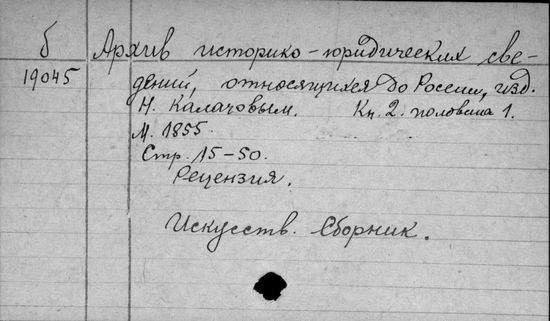 б Архив историко-юридических све-
19045 дений, относящихся до России, изд.
Н. Калачовым. Кн. 2. половина 1.
М. 1855.
Стр. 15-50.
Рецензия.
Искусств. Сборник.